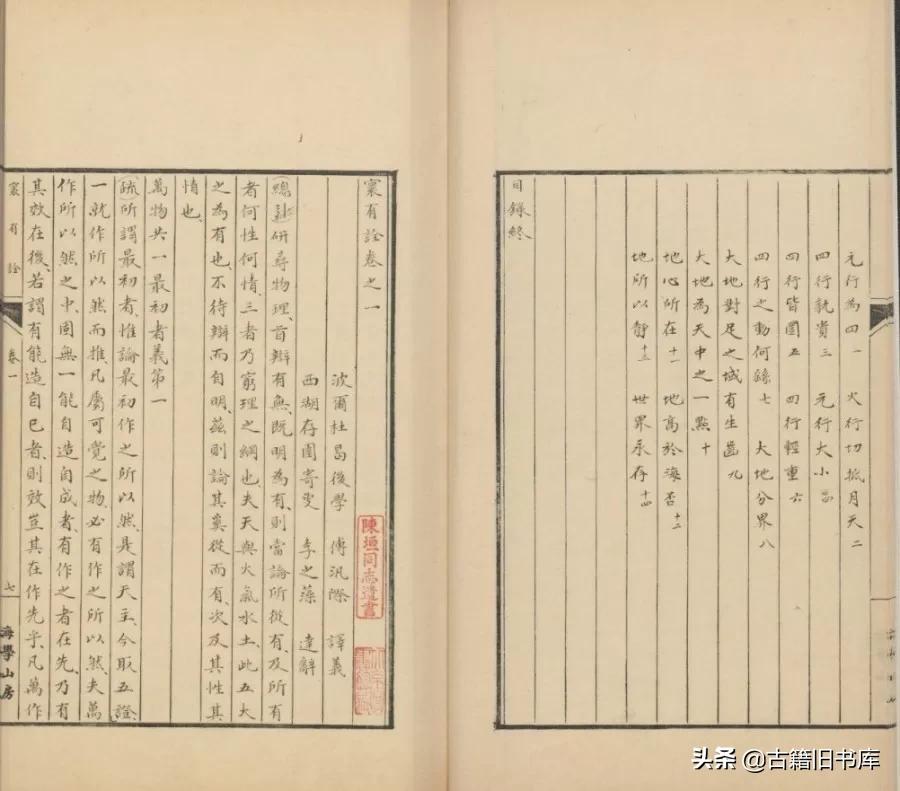 元行為四一　火行切抵月天二
四行孰貴三　元行大小四
四行皆圓五　四行輕重六
四行之動何繇七　大地分界八
大地對足之域有生齒九
大地為天中之一點十
地心所在十一　地高於海否十二
地所以靜十三　世界永存十四
目錄終
寰有詮卷之一
波爾杜曷後學　傅汎際　譯義
西湖存園寄叟　李之藻　達辭
總論研尋物理首辯有無既明為有則當論所從有及所有
者何性何情三者乃窮理之綱也夫天與火氣水土此五大
之為有也不待辯而自明茲則論其奚從而有次及其性其
情也
萬物共一最初者義第一
疏所謂最初者惟論最初作之所以然是謂天主今取五證
一就作所以然而推凡屬可覺之物必有作之所以然夫萬
作所以然之中固無一能自造自成者有作之者在先乃有
其效在後若謂有能造自己者則效豈其在作先乎凡萬作
寰有詮
卷一
七
海學山房
陳垣同志遺書
头条 @古籍旧书库